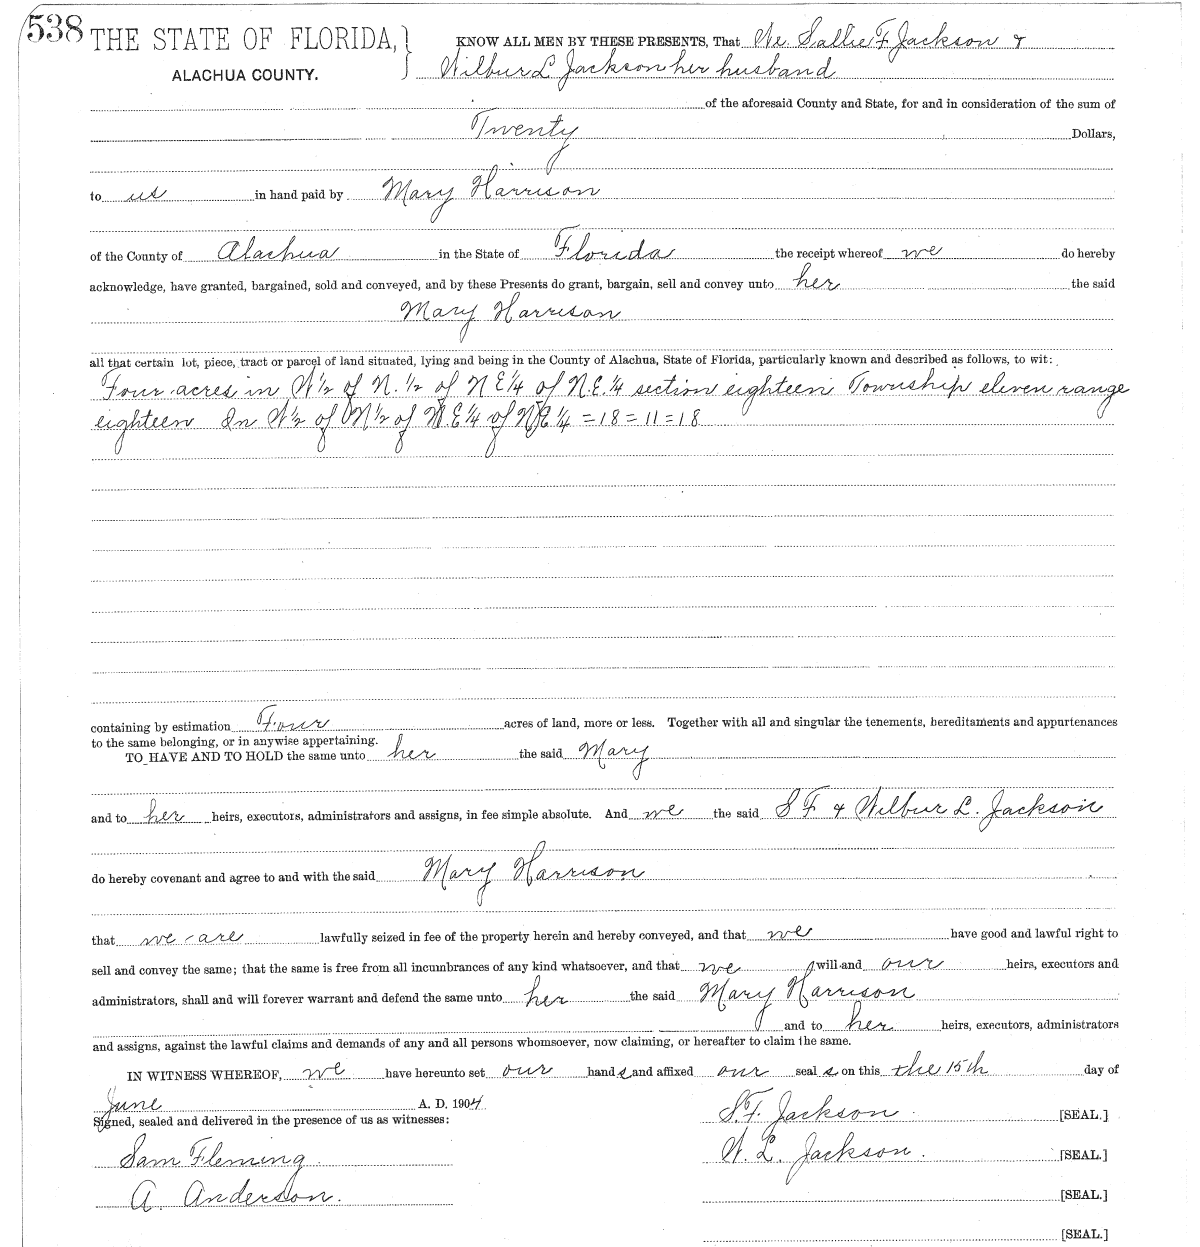 538 THE STATE OF FLORIDA, KNOW ALL MEN BY THESE PRESENTS, That We Sallie F Jackson &
ALACHUA COUNTY. Wilbur L Jackson her husband
of the aforesaid County and State, for and in consideration of the sum of
Twenty Dollars,
to us in hand paid by Mary Harrison
of the County of Alachua in the State of Florida the receipt whereof we do hereby
acknowledge, have granted, bargained, sold and conveyed, and by these Presents do grant, bargain, sell and convey unto her the said
Mary Harrison
all that certain lot, piece, tract or parcel of land situated, lying and being in the County of Alachua, State of Florida, particularly known and described as follows, to wit:
Four acres in W 1/2 of N. 1/2 of N E 1/4 of N.E. 1/4 section eighteen Township eleven range
eighteen In W 1/2 of N 1/2 of N.E 1/4 of N E 1/4 = 18 = 11 = 18
containing by estimation Four acres of land, more or less. Together with all and singular the tenements, hereditaments and appurtenances
to the same belonging, or in anywise appertaining.
TO HAVE AND TO HOLD the same unto her the said Mary
and to her heirs, executors, administrators and assigns, in fee simple absolute. And we the said S F & Wilbur L. Jackson
do hereby covenant and agree to and with the said Mary Harrison
that we are lawfully seized in fee of the property herein and hereby conveyed, and that we have good and lawful right to
sell and convey the same; that the same is free from all incumbrances of any kind whatsoever, and that we will and our heirs, executors and
administrators, shall and will forever warrant and defend the same unto her the said Mary Harrison
and to her heirs, executors, administrators
and assigns, against the lawful claims and demands of any and all persons whomsoever, now claiming, or hereafter to claim the same.
IN WITNESS WHEREOF, we have hereunto set our hands and affixed our seal s on this the 15th day of
June A. D. 1904
Signed, sealed and delivered in the presence of us as witnesses: S.F. Jackson [SEAL.]
Sam Fleming W. L. Jackson. [SEAL.]
A. Anderson. [SEAL.]
[SEAL.]